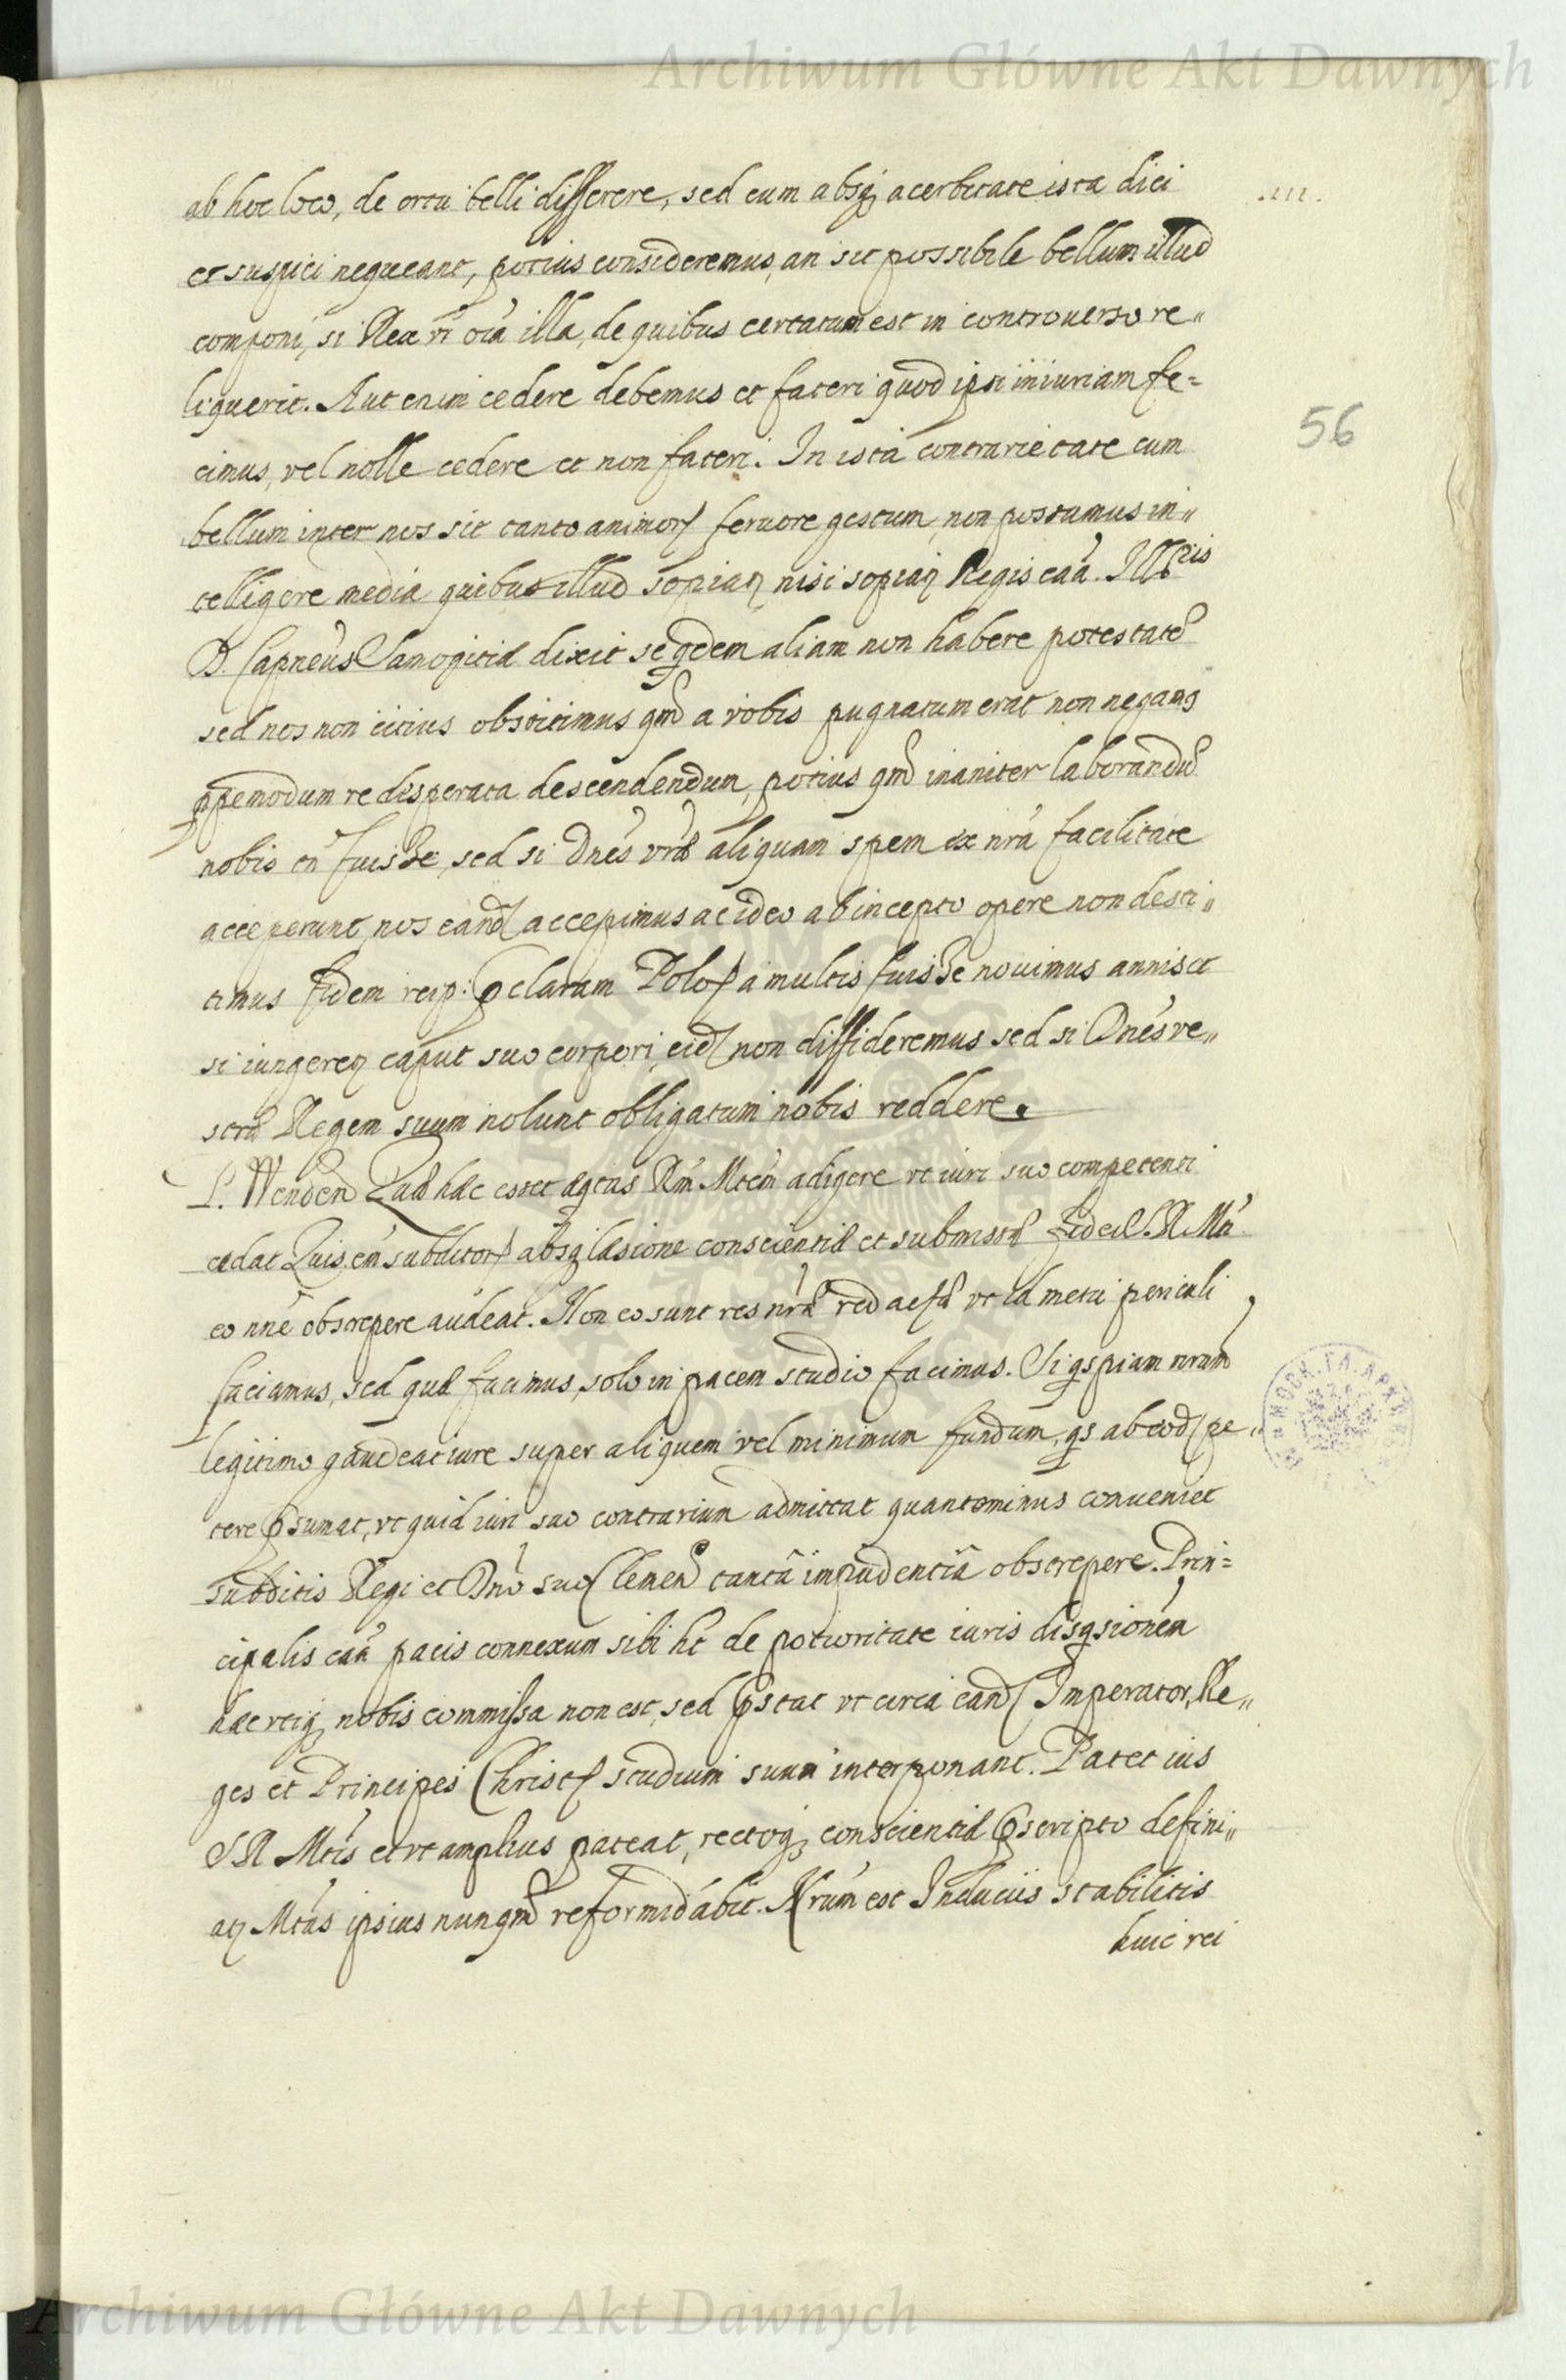 Archiwum Główne Akt Dawnych
ab hoc loco, de ortu belli disserere, sed cum absq; acerbitate ista dici
et suspici nequeant, potius consideremus, an sit possibile bellum illud
componi, si Rex vr̃ oĩa illa, de quibus certatum est in controuerso re„
liquerit. Aut enim cedere debemus et fateri quod ipsi iniuriam fe=
cimus, vel nolle cedere et non fateri. In ista contrarietate cum
bellum inter nos sit tanto animorꝝ feruore gestum, non possumus in„
56
telligere media quibus illud sopiaꝶ nisi sopiaꝶ Regis cãa. Illris
D. Capneus Samogitiæ dixit se qdem aliam non habere potestatẽ
sed nos non citius obstitimus qm̃ a vobis pugnatum erat non negamꝰ
ppemodum re desperata descendendum, potius qm̃ inaniter laborandũ
nobis tñ fuisse, sed si Dnẽs vræ aliquam spem ex nrã facilitate
acceperunt, nos eand accepimus ac ideo ab incepto opere non desti„
timus fidem reip: pclaram Poloꝝ a multis fuisse nouimus annis et
si iungereꝶ caput suo corpori, eid non diffideremus sed si Dnẽs ve„
stræ Regem suum nolunt obligatum nobis reddere.
P. Wenden Quid hæc esset Rm̃ Mtem adigere vt iuri suo competenti
cedat Quis em̃ subditorꝝ absq; læsione conscientiæ et submissæ fidei S. R. Mti
eo nñe obstrepere audeat. Non eo sunt res nræ redactæ vt id metu periculi
faciamus, sed quæ facimus, solo in pacem studio facimus. Si qspiam
legitimo gaudeat iure super aliquem vel minimum fundum, qs ab eod pe„
tere psumat, vt quid iuri suo contrarium admittat quantominus conueniet
subditis Regi et Dnõ suo Clemeñ tantâ impudentiâ obstrepere. Prin=
cipalis cãa pacis connexum sibi ht de potioritate iuris disqsionem
hæc vtiq; nobis commissa non est, sed pstat vt circa eand Imperator, Re„
ges et Principes Christ studium suum interponant. Patet ius
S R Mtis et vt amplius pateat, rectoq; conscientiæ pscripto defini„
aꝶ Mtas ipsius nunqm̃ reformidabit. Nrũm est Induciis stabilitis
huic rei
Archiwum Główne Akt Dawnych